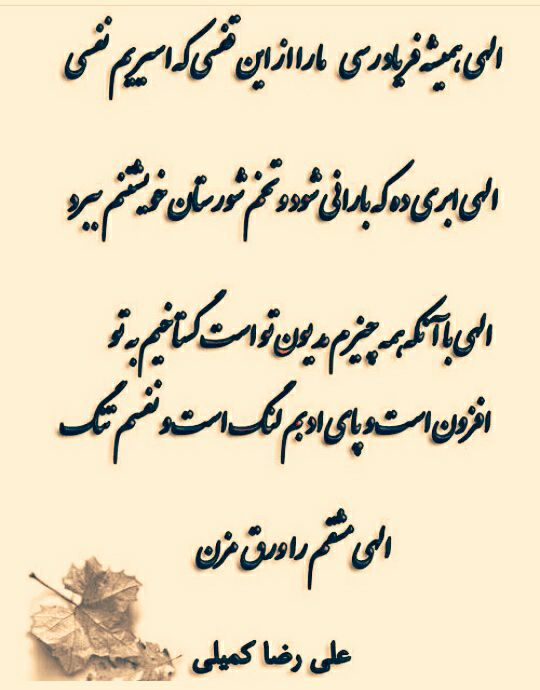 الهی همیشه فریادرسی ما را از این قفسی که اسیریم نفسی
الهی ابری ده که بارانی شود و تخم شورستان خویشتنم ببرد
الهی با آنکه همه چیزم مدیون تو است گستاخیم به تو
افزون است و پای ادبم لنگ است و نفسم تنگ
الهی مشقم را ورق مزن
علی رضا کمیلی